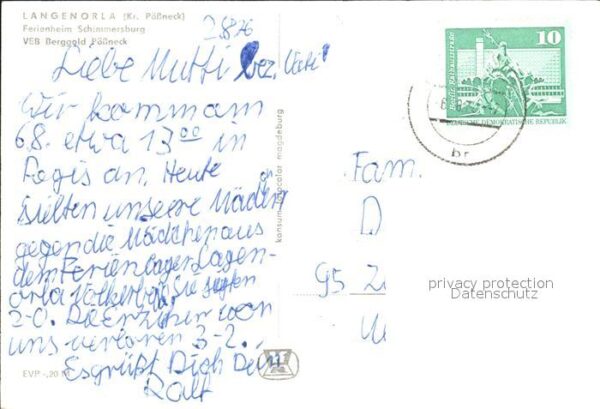 LANGENORLA (Kr. Pößneck)
Ferienheim Schimmersburg
VEB Berggold Pößneck
2.8.76
Liebe Mutti bez. Vati
Wir kommam
6.8. etwa 13 00 in
Regis an. Heute
spielten unsere Mädchen
gegen die Mädchen aus
dem Ferienlager Langen-
orla Völkerball Sie siegten
2-0. Die Erzieher von
uns verloren 3-2.
Es grüßt Dich Dein
Ralf
EVP -,20 M
konsum
magdeburg
10
Berlin, Rathausstraße
DEUTSCHE DEMOKRATISCHE REPUBLIK
br
Fam.
D
95 Z
privacy protection
Datenschutz